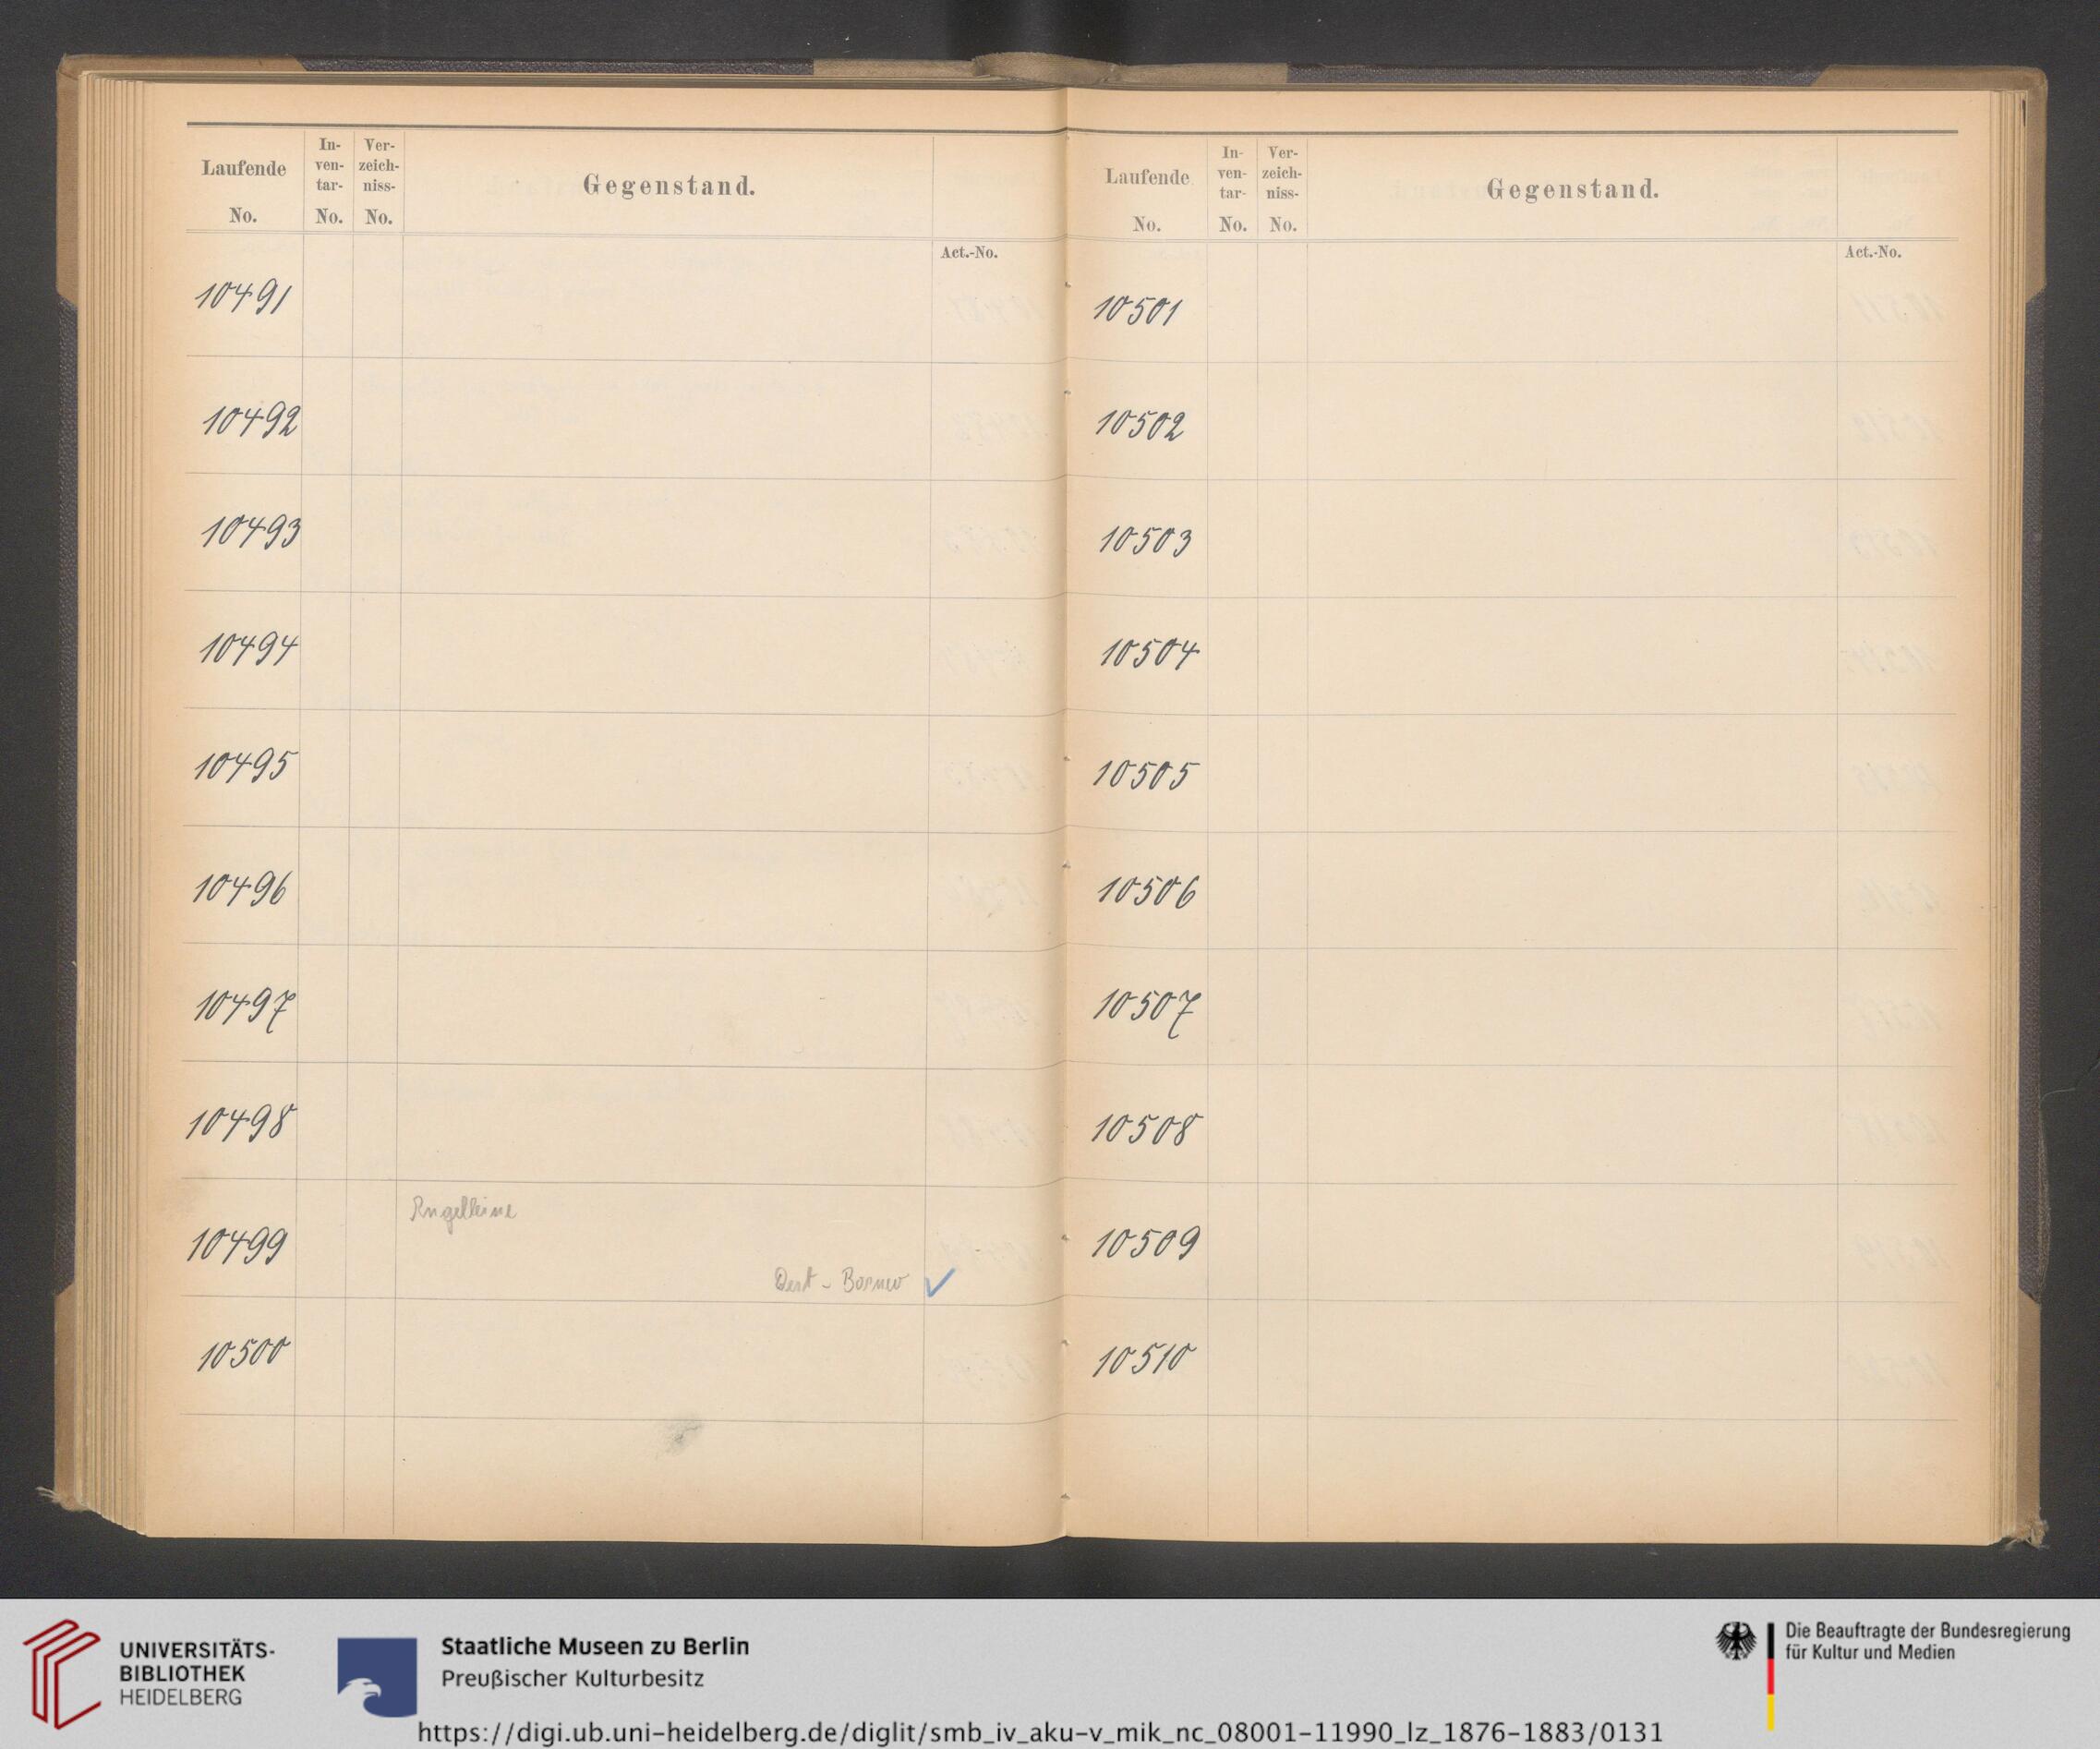 Laufende
No.
In-
ven-
tar-
No.
Ver-
zeich-
niss-
No.
Gegenstand.
Act.-No.
10491
10492
10493
10494
10495
10496
10497
10498
10499
Angelleine
Ost - Borneo ✓
10500
Laufende
No.
In-
ven-
tar-
No.
Ver-
zeich-
niss-
No.
Gegenstand.
Act.-No.
10501
10502
10503
10504
10505
10506
10507
10508
10509
10510
UNIVERSITÄTS-
BIBLIOTHEK
HEIDELBERG
Staatliche Museen zu Berlin
Preußischer Kulturbesitz
Die Beauftragte der Bundesregierung
für Kultur und Medien
https://digi.ub.uni-heidelberg.de/diglit/smb_iv_aku-v_mik_nc_08001-11990_lz_1876-1883/0131